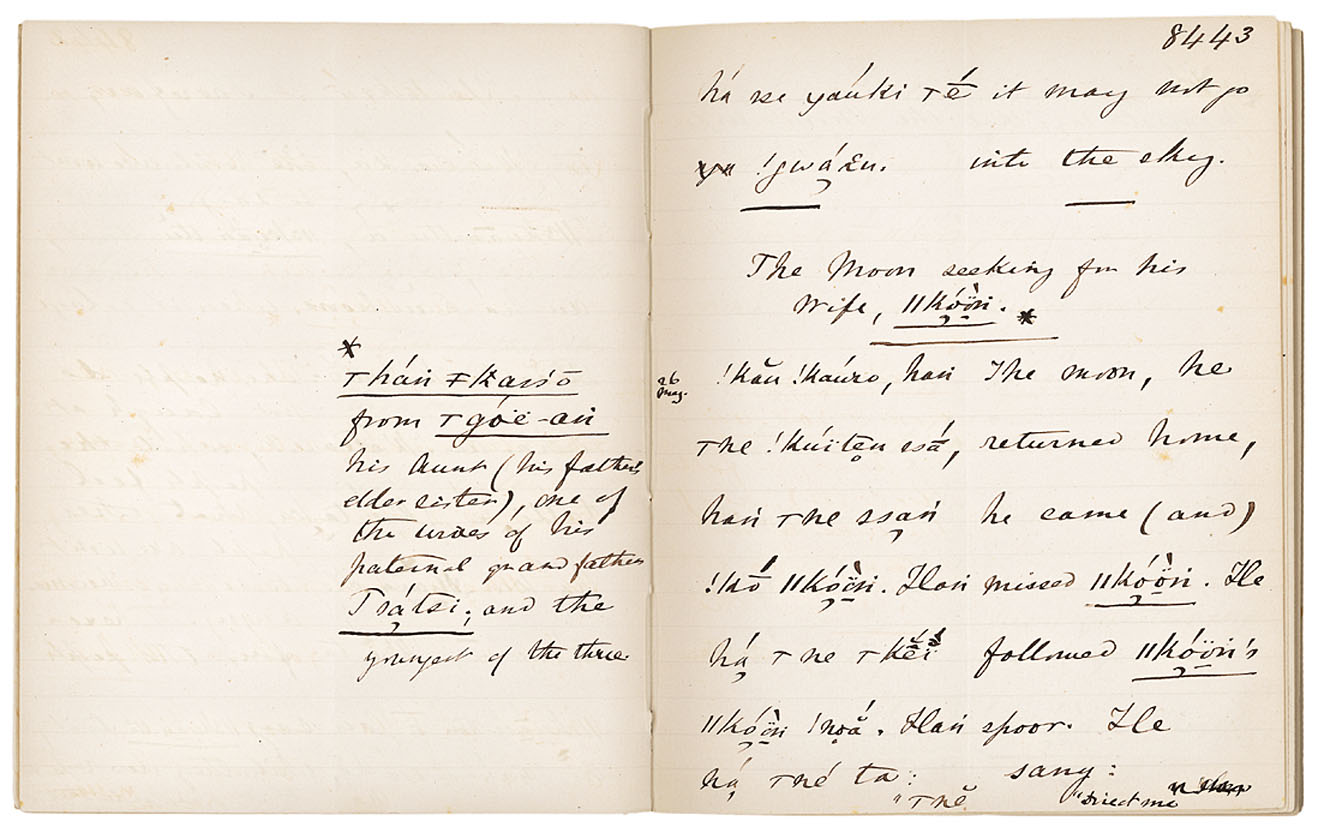 *
ꞇhán ǂkaššō
from ꞇgóë-añ
his Aunt (his father's
elder sister), one of
the wives of his
paternal grandfather
Tsátsi; and the
youngest of the three
8443
há se yaúki ꞇḗ it may not go
!gwáχu. into the sky.
The Moon seeking for his
wife, ǁkóö̀ṅ. *
26 May.
!kăṅ !kaúχo, haṅ The moon, he
ꞇne !kúïteṇ ssā́, returned home,
haṅ ꞇne ssạṅ́ he came (and)
!kō̃́ ǁkóö̀ṅ. Haṅ missed ǁkóö̀ṅ. He
hạ́ ꞇne followed ǁkóö̀ṅ's
ǁkóö̀ṅ !nọắ. Haṅ spoor. He
hạ́ ꞇné ta: sang:
"ꞇnĕ̄ "Direct me